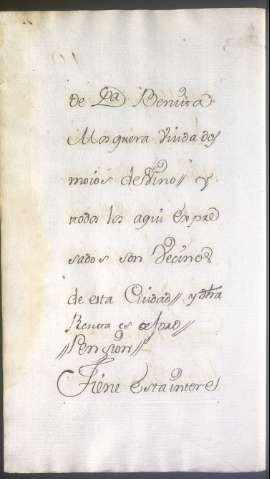 de Dª Benita
Mosquera Viuda dos
moios de Vino // y
todos los aqui expre
sados son Vecinos
de esta Ciudad // y dha
Renta es
// Pension //
Tiene esta interes